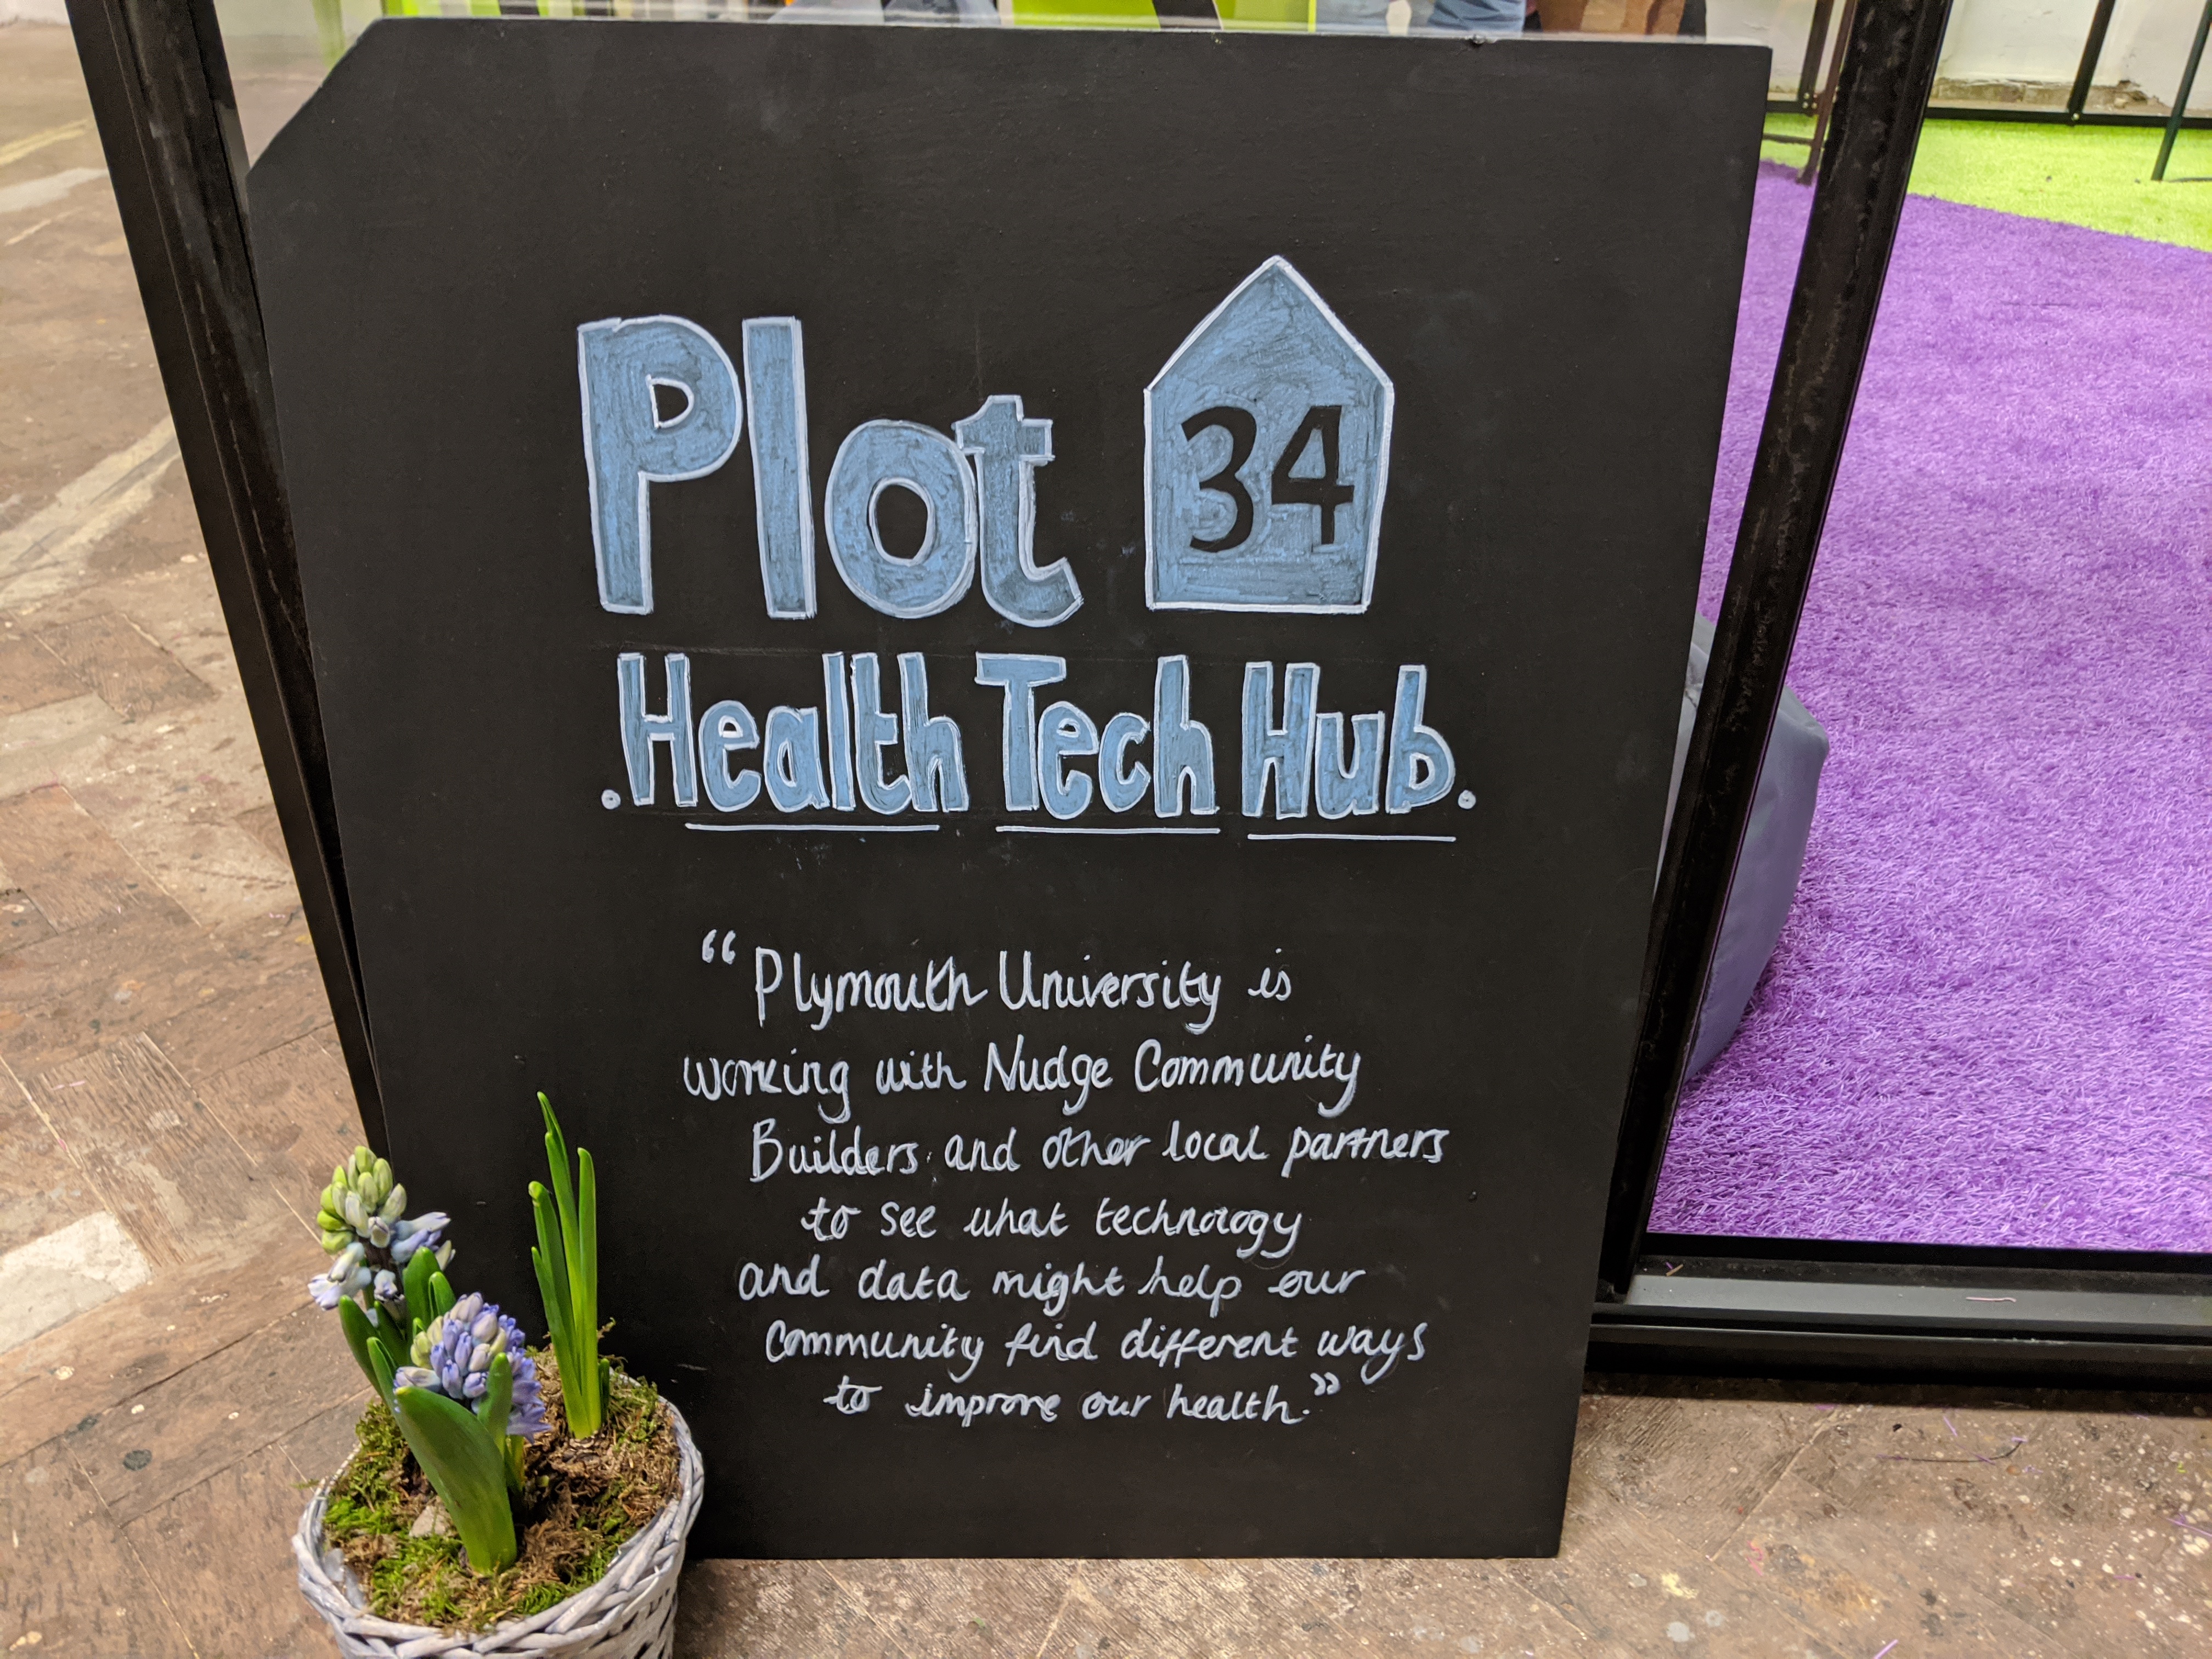 Plot 34
.Health Tech Hub.
“Plymouth University is
working with Nudge Community
Builders and other local partners
to see what technology
and data might help our
community find different ways
to improve our health.”